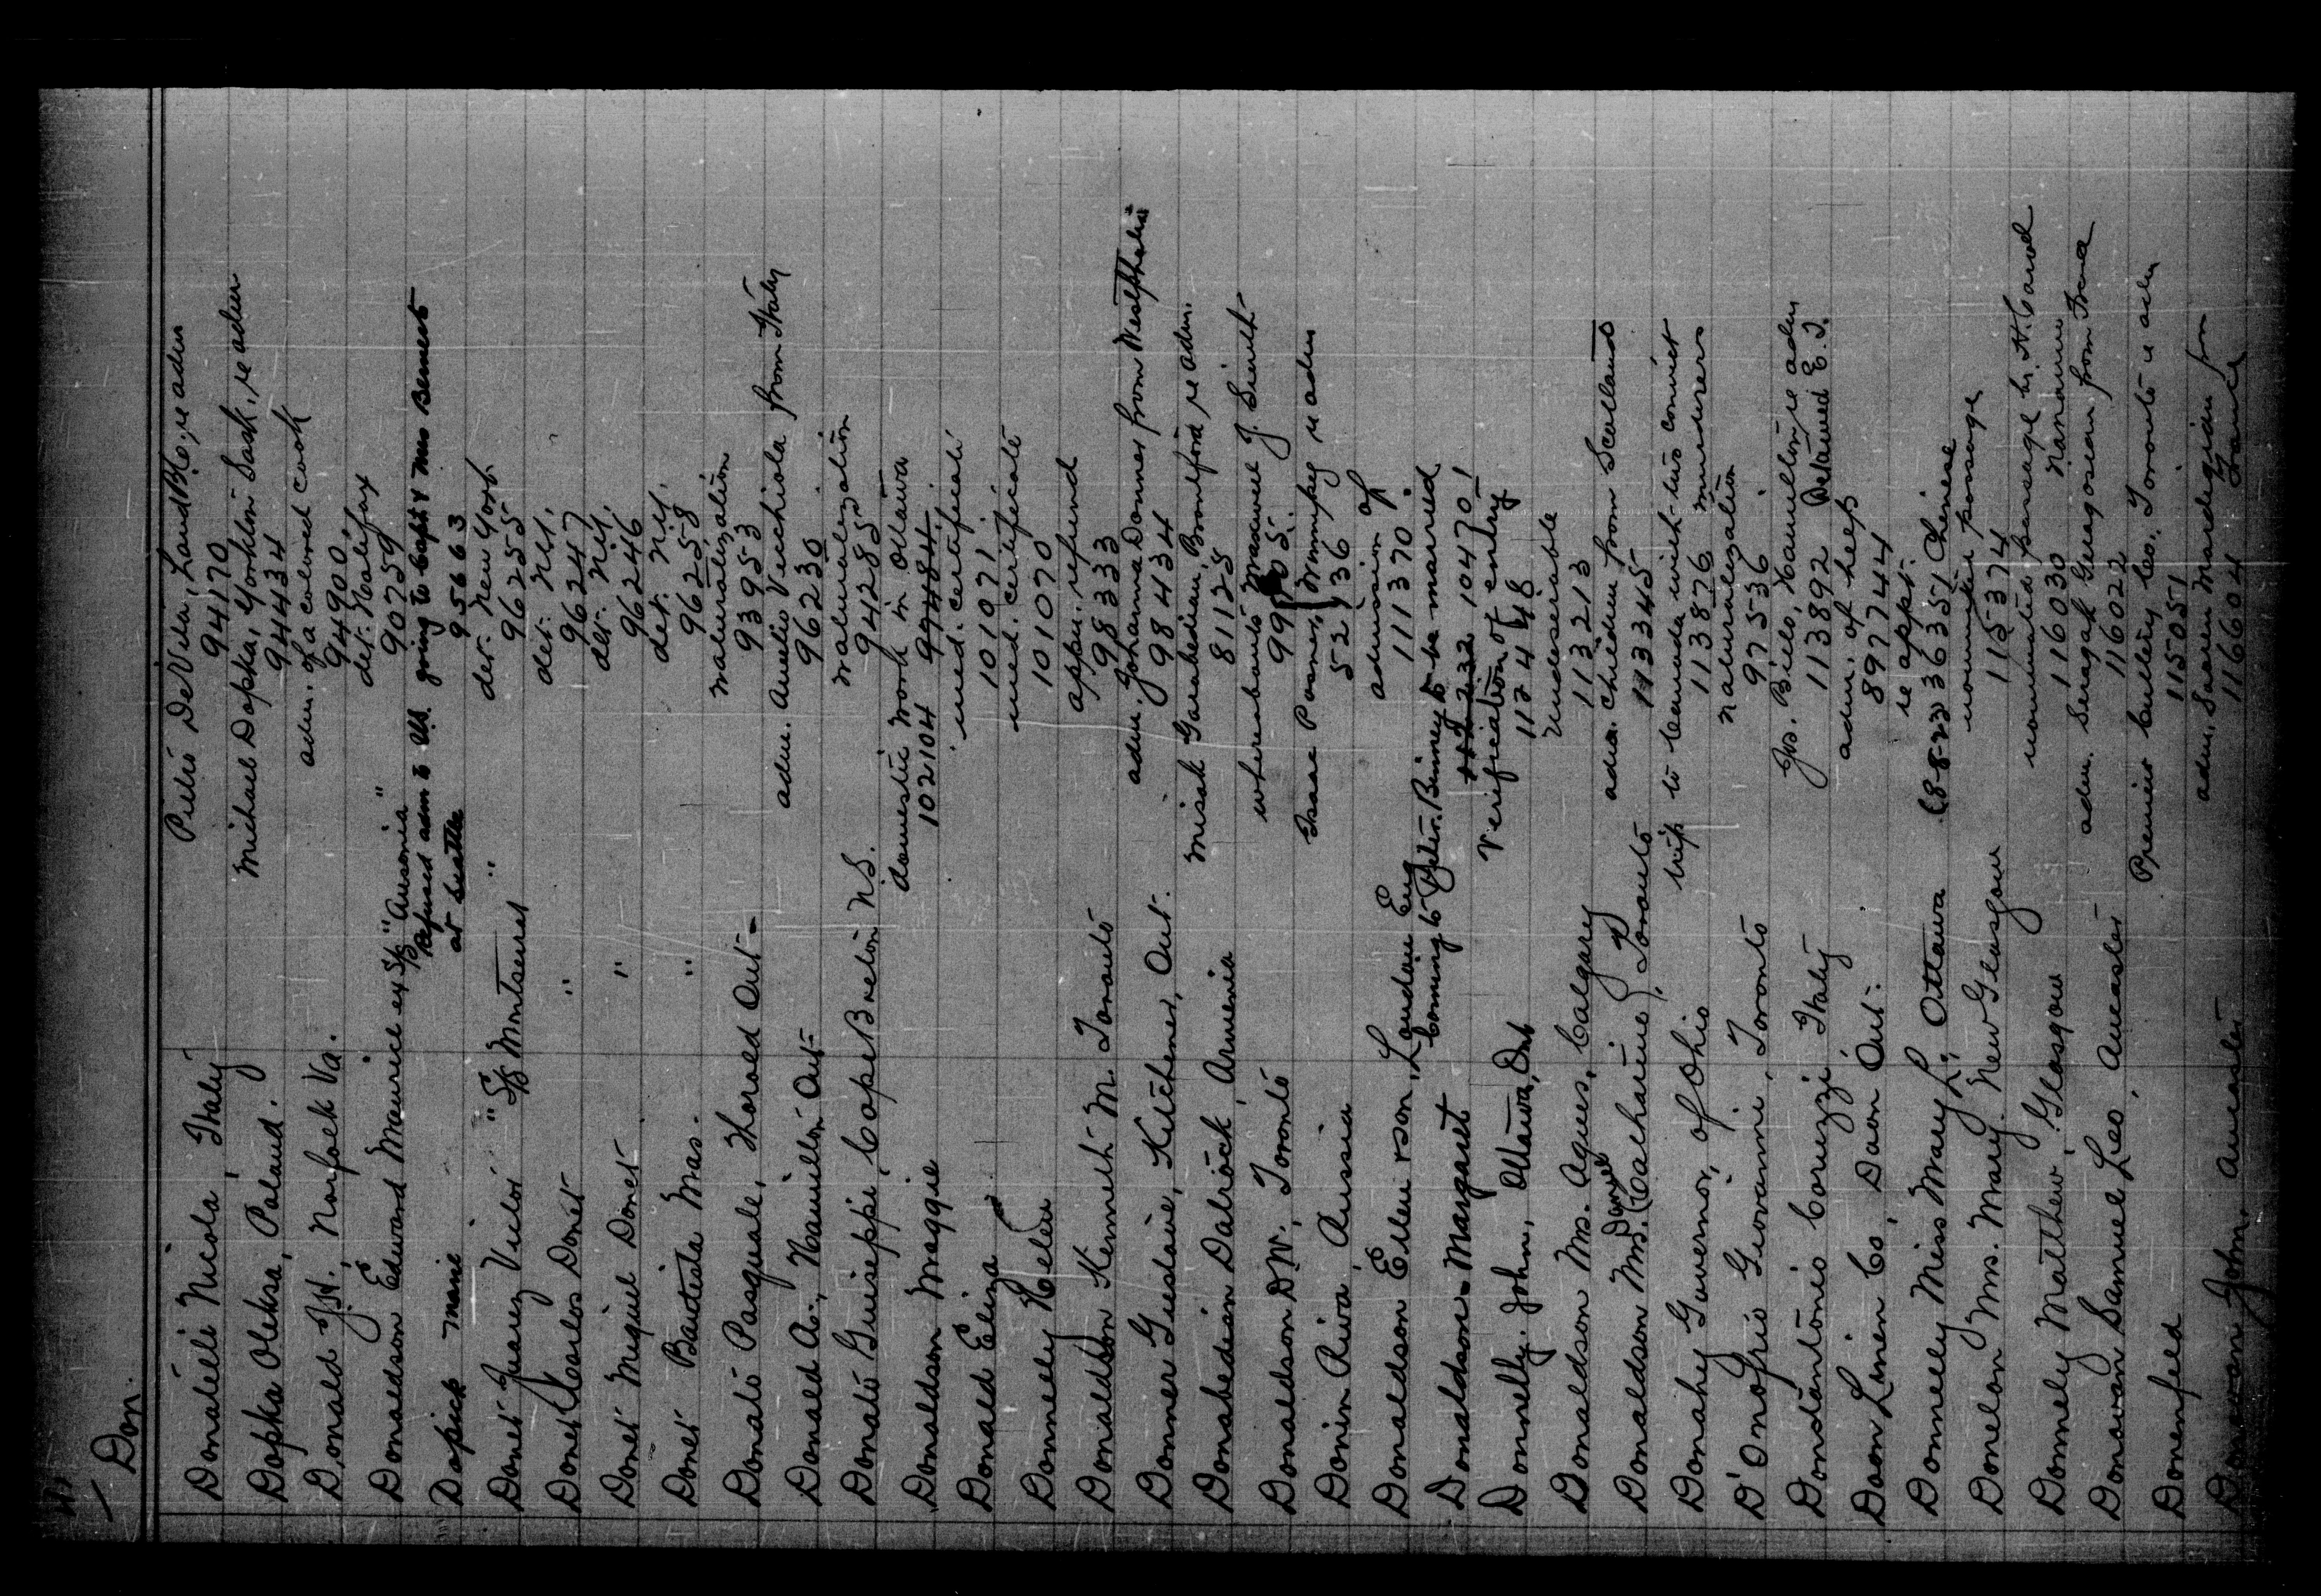 Don.
Donatelli Nicola, Italy Pietro DeVito, re adm
94170
Dopka Oleksa, Poland. Michael Dopka, Yorkton Sask, re adm
94434
Donald J.H., Norfolk Va. adm. of a colored cook
94900
Donaldson Edward Maurice ex S/S "Ausonia" det. Halifax
90759
Dopick Marie Refused adm to US. going to Capt & Mrs Bennett
at Seattle 95663
Donet Juarez Victor "S/S Montserrat" det. New York
96255
Donet Carlos Donet " det. N.Y.
96247
Donet Miguel Donet " det. N.Y.
96246
Donet Bautista Mas. " det. N.Y.
96258
Donato Pasquale, Thorold Ont. naturalization
93953
Donald A., Hamilton Ont. adm. Aurelio Vecchiola from Italy
96230
Donato Guiseppi, Cape Breton N.S. naturalization
94285
Donaldson Maggie domestic work in Ottawa
102104 99484
Donald Eliza med. certificate
101071
Donnelly Helen med. certificate
101070
Donaldson Kenneth M. Toronto appn. refund
98333
Donner Gustave, Kitchener, Ont. adm. Johanna Donner from Westphalia
98434
Donabedian Dalrock, Armenia Misak Garabedian, Brantford re adm.
81125
Donaldson D.W., Toronto whereabouts Maxwell J. Smith
Donin Riva, Russia Isaac Posner, Winnipeg re adm
52136
Donaldson Ellen rson, London Eng admission of
111370
Donaldson Margaret coming to Peter Binney to be married
104701
Donnelly, John, Ottawa, Ont Verification of entry
112448
Donaldson Mrs. Agnes, Calgary Undesirable
113213
Donaldson Mrs. Daniel (Catharine), Toronto adm. children from Scotland
113345
Donahy Governor, of Ohio trip to Canada with two convict
113876 murderers
D'Onofrio Giovanni, Toronto naturalization
97536
Donstantonio Coruzzi Italy Jos. Biello, Hamilton re adm
113892 Detained E.I.
Doon Linen Co, Doon Ont. adm. of help
897744
Donnelly Miss Mary L., Ottawa re appt.
36351 Chinese
Donelon Mrs. Mary, New Glasgow nominated passage
115374
Donnely Matthew, Glasgow nominated passage by H. Carol
116030 Nanaimo
Donovan Samuel Leo, Ancaster adm. Seragak Geragosian from France
116022
Donenfeld Premier Cutlery Co. Toronto re adm
115051
Donovan John, Ancaster adm. Souren Mardigian from
116604 France